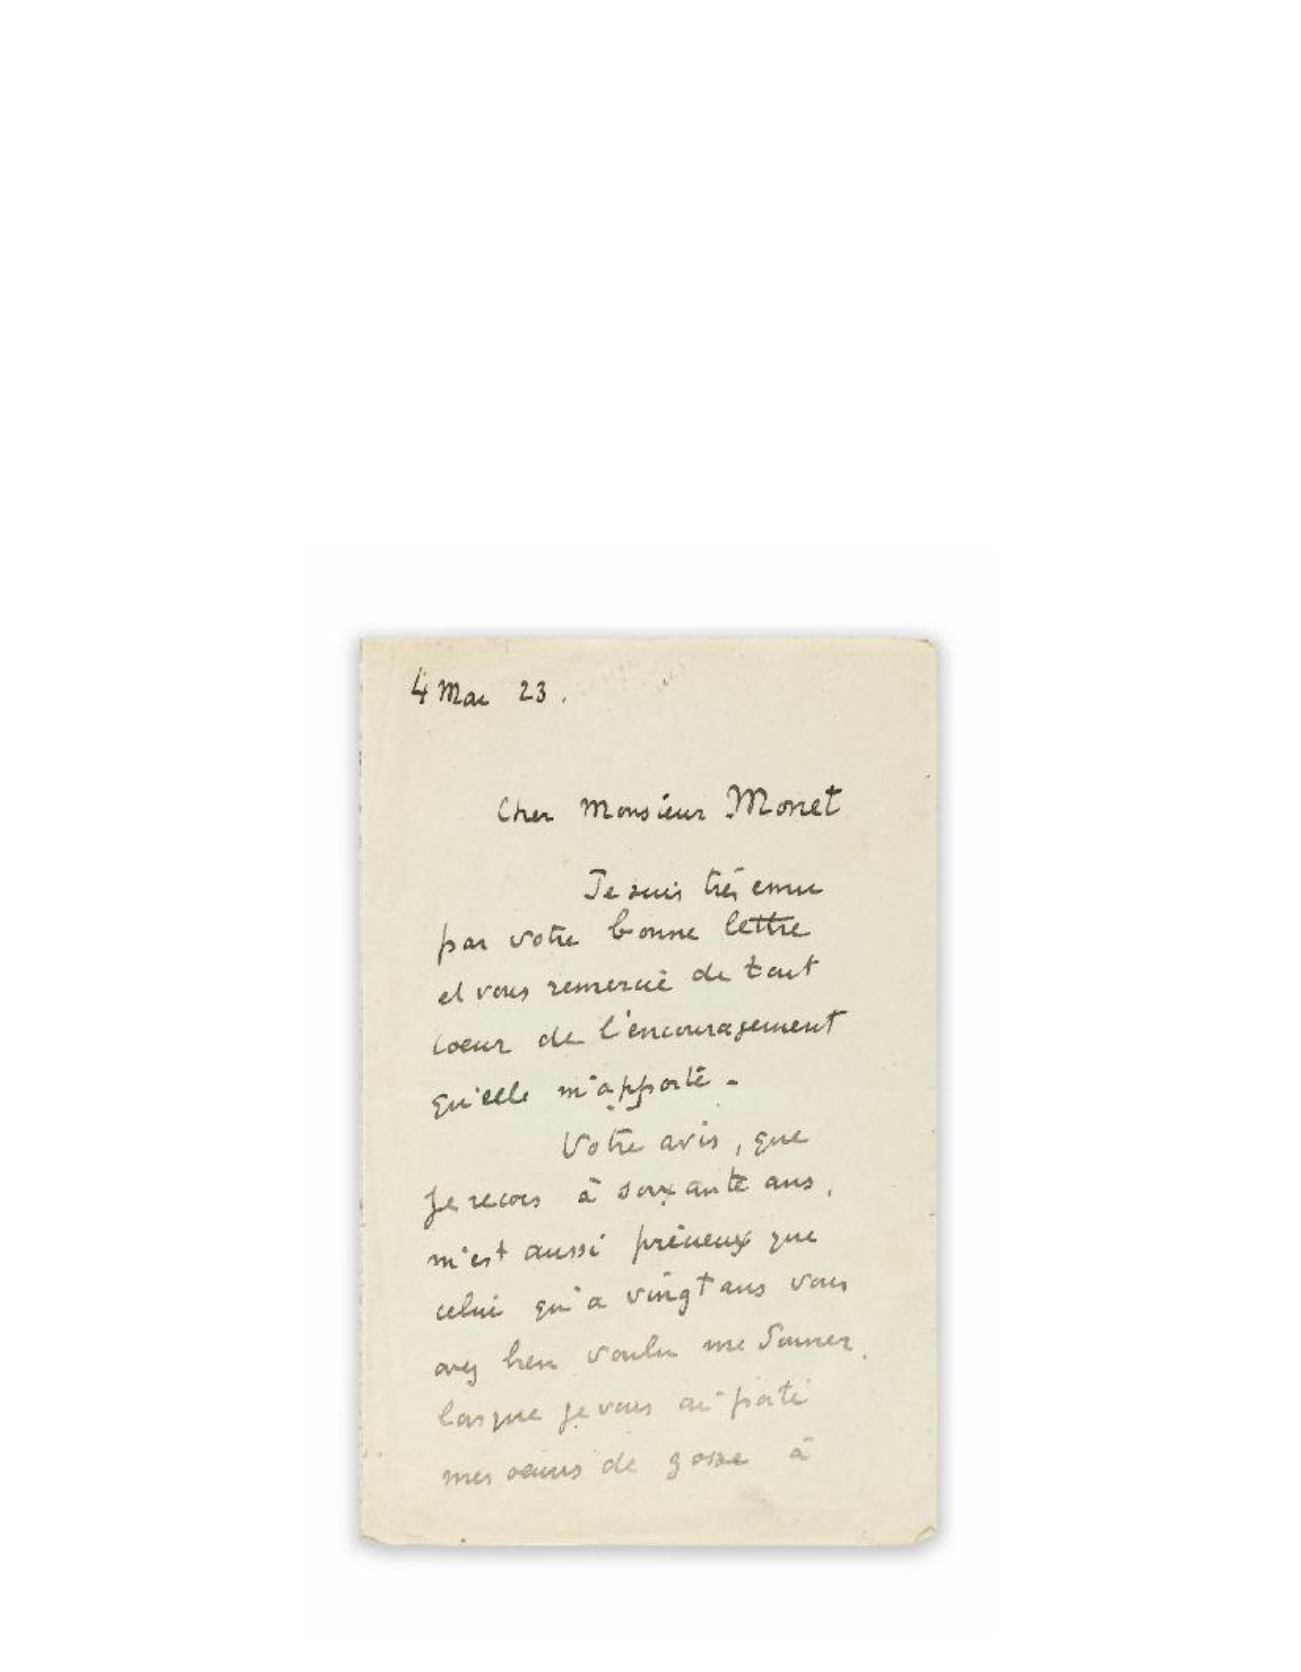 4 Mai 23.
Cher Monsieur Monet
Je suis très emu
par votre bonne lettre
et vous remercie de tout
coeur de l'encouragement
qu'elle m'apporte -
Votre avis, que
je recois à soixante ans,
m'est aussi précieux que
celui qu'a vingt ans vous
avez bien voulu me donner
lorsque je vous ai porté
mes de gosse à